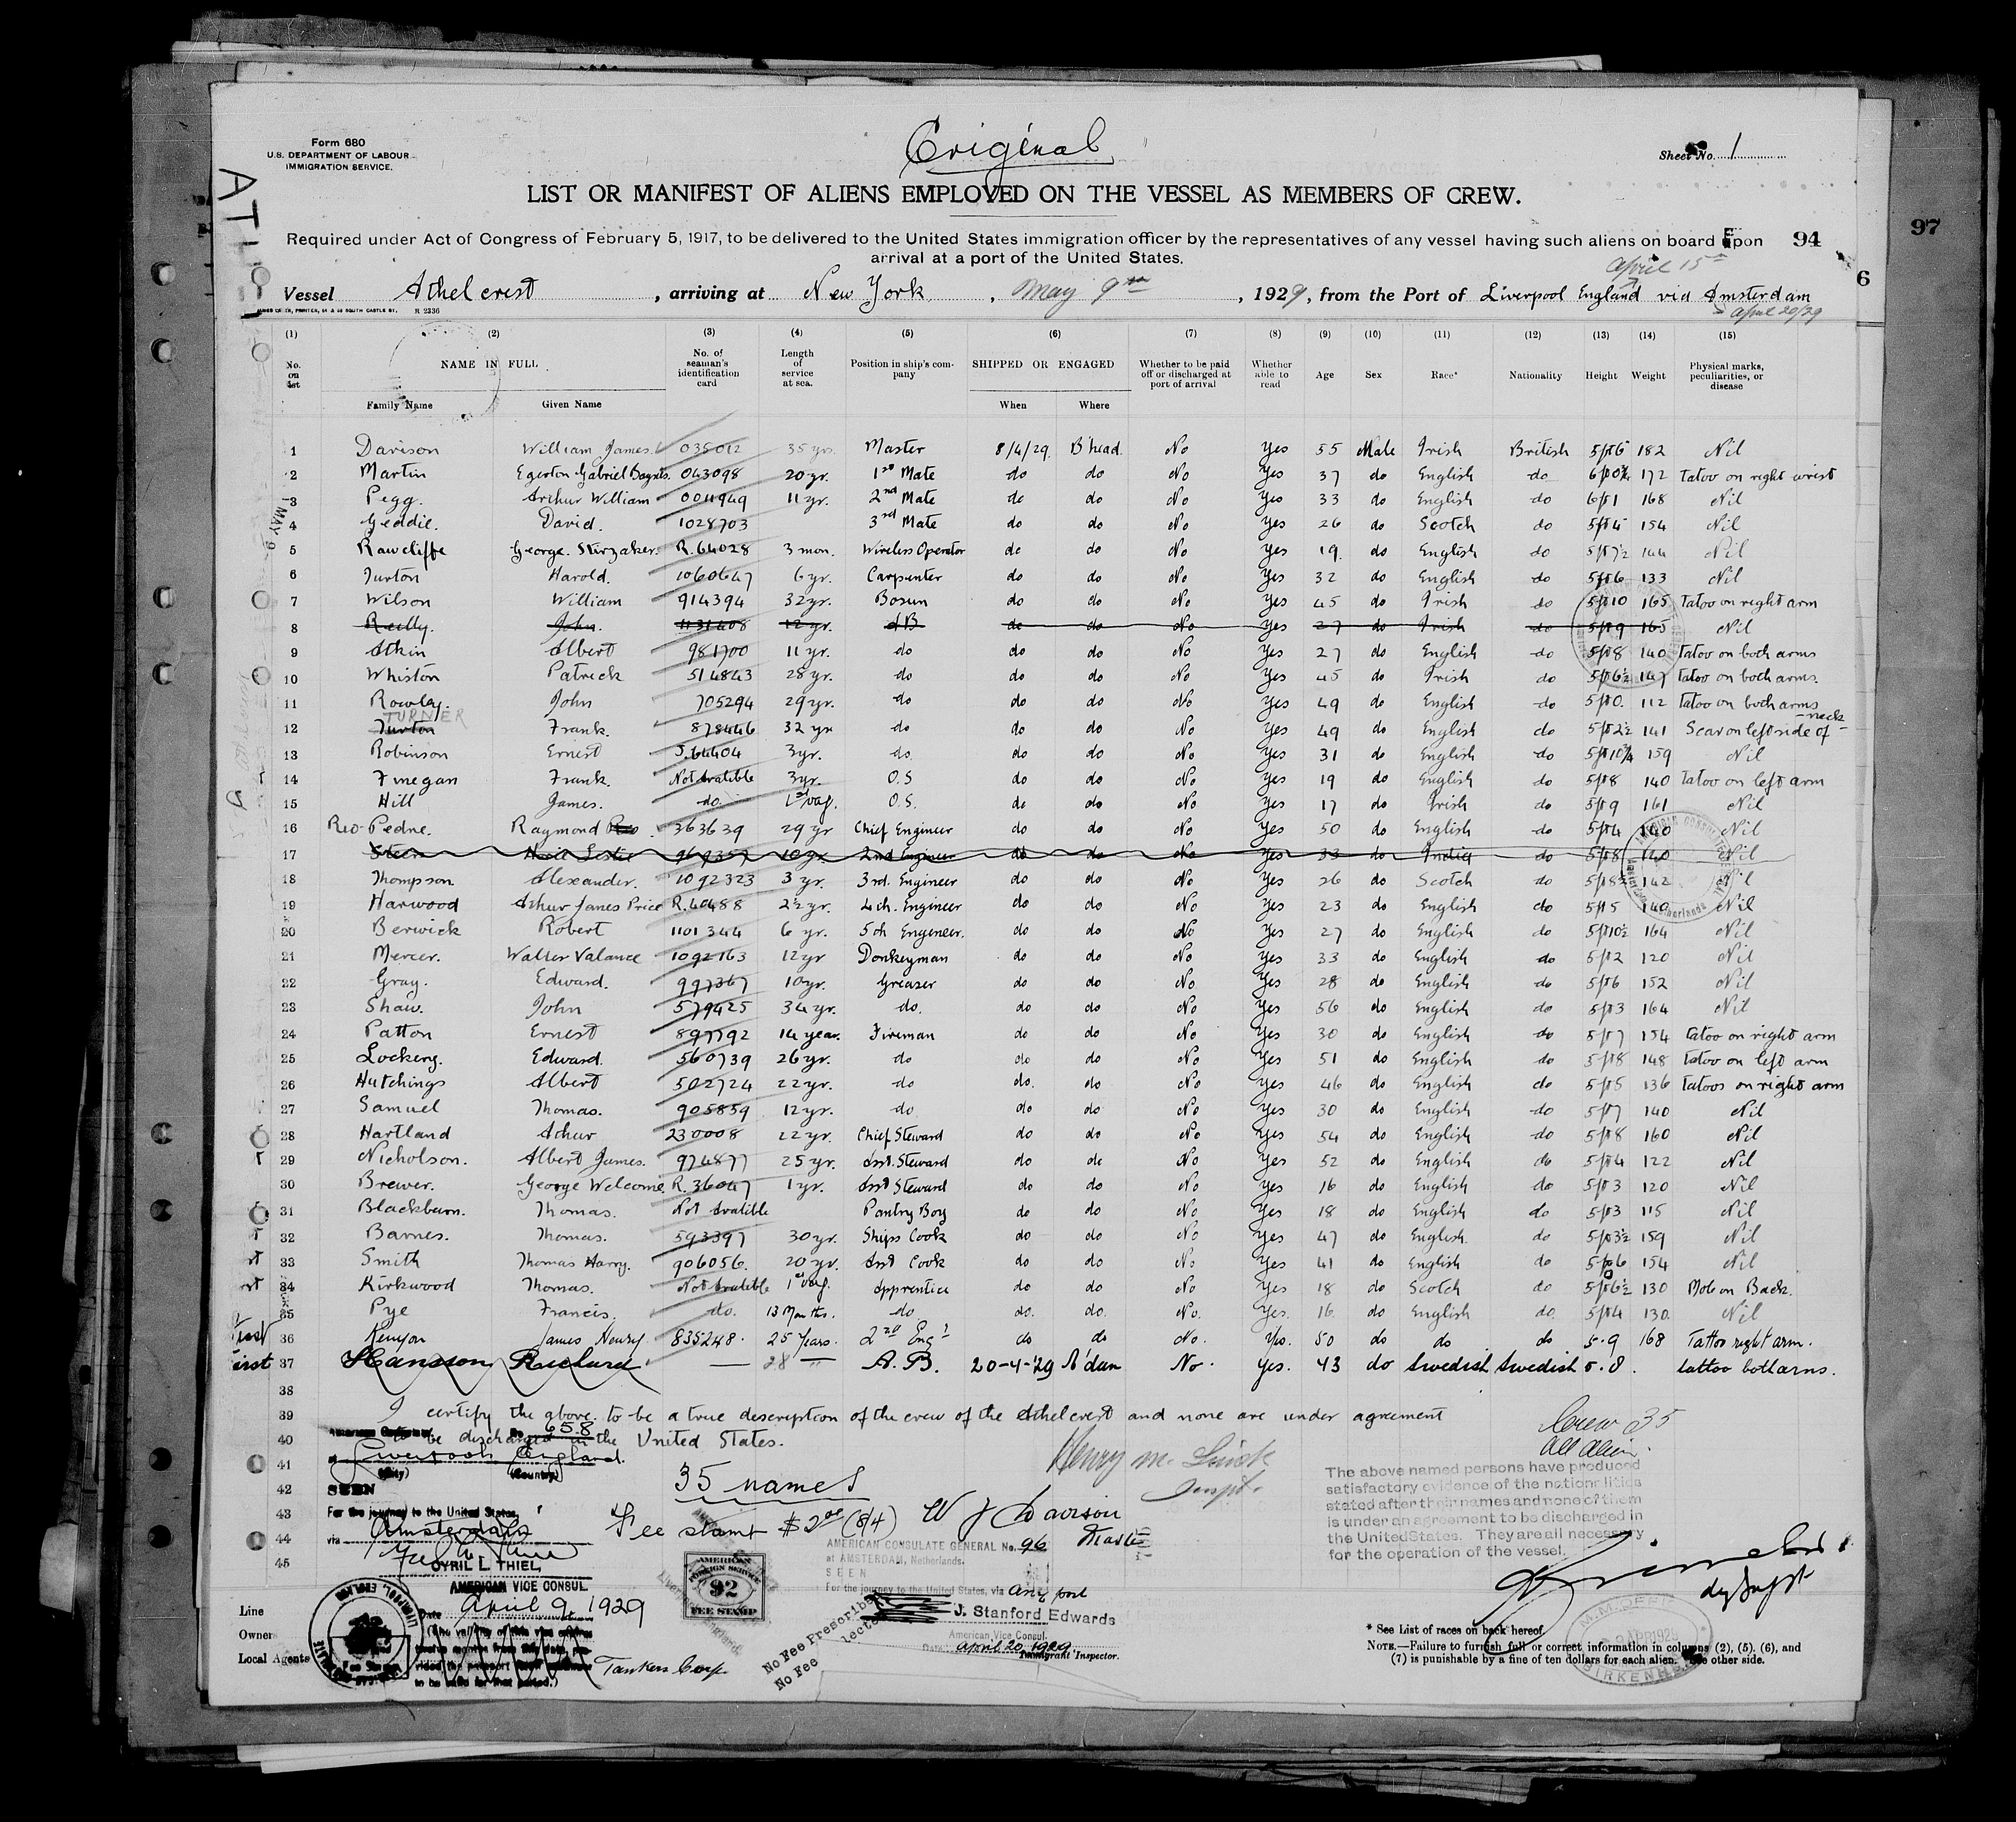 Original
Form 680
U.S. DEPARTMENT OF LABOUR
IMMIGRATION SERVICE.
Sheet No. 1
LIST OR MANIFEST OF ALIENS EMPLOYED ON THE VESSEL AS MEMBERS OF CREW.
Required under Act of Congress of February 5, 1917, to be delivered to the United States immigration officer by the representatives of any vessel having such aliens on board upon 94
97
arrival at a port of the United States.
April 15th
6
Vessel Athelcrest, arriving at New York, May 9th, 1929, from the Port of Liverpool England via Amsterdam
April 20/29
R 2336
(1) (2) (3) (4) (5) (6) (7) (8) (9) (10) (11) (12) (13) (14) (15)
No. on list NAME IN FULL No. of seaman's identification card Length of service at sea. Position in ship's company SHIPPED OR ENGAGED Whether to be paid off or discharged at port of arrival Whether able to read Age Sex Race* Nationality Height Weight Physical marks, peculiarities, or disease
Family Name Given Name When Where
1 Davison William James 035012 35 yrs. Master 8/4/29 B'head. No Yes 55 Male Irish British 5ft6 182 Nil
2 Martin Egerton Gabriel Baynes. 043098 20 yr. 1st Mate do do No Yes 37 do English do 6ft0¾ 172 Tatoo on right wrist
3 Pegg. Arthur William 004949 11 yr. 2nd Mate do do No Yes 33 do English do 6ft1 168 Nil
4 Geddie. David. 1028703 3rd Mate do do No Yes 26 do Scotch do 5ft5 154 Nil
5 Rawcliffe George. Stirzaker. R.64028 3 mon. Wireless Operator do do No Yes 19 do English do 5ft7½ 144 Nil
6 Turton Harold. 1060647 6 yr. Carpenter do do No Yes 32 do English do 5ft6 133 Nil
7 Wilson William 914394 32 yr. Bosun do do No Yes 45 do Irish do 5ft10 165 Tatoo on right arm
8 Reilly. John. 1131408 12 yr. AB do do No Yes 27 do Irish do 5ft9 165 Nil
9 Atkin Albert 981700 11 yr. do do do No Yes 27 do English do 5ft8 140 Tatoo on both arms
10 Whiston Patrick 514843 28 yr. do do do No Yes 45 do Irish do 5ft6½ 147 Tatoo on both arms.
11 Rowley. John 705294 29 yr. do do do No Yes 49 do English do 5ft0. 112 Tatoo on both arms
TURNER
neck
12 Turton Frank. 878446 32 yr do do do No Yes 49 do English do 5ft2½ 141 Scar on left side of
13 Robinson Ernest J.64404 3 yr. do. do do No Yes 31 do English do 5ft10¾ 159 Nil
14 Finegan Frank. Not Avatible 3 yr. O.S do do No Yes 19 do English do 5ft8 140 Tatoo on left arm
15 Hill James. do 1st Voy. O.S. do do No Yes 17 do Irish do 5ft9 161 Nil
16 Reo-Pedne. Raymond 363639 29 yr Chief Engineer do do No Yes 50 do English do 5ft4 140 Nil
17 Steen Leslie 10 yr. 2nd Engineer do do No Yes 33 do India do 5ft8 140 Nil
18 Thompson Alexander. 1092323 3 yr. 3rd. Engineer do do No Yes 26 do Scotch do 5ft8½ 142 Nil
19 Harwood Arthur James Price R.40488 2½ yr. 4th. Engineer do do No Yes 23 do English do 5ft5 140 Nil
20 Berwick Robert 1101344 6 yr. 5th Engineer. do do No Yes 27 do English do 5ft10½ 164 Nil
21 Mercer. Walter Valance 1092163 12 yr Donkeyman do do No Yes 33 do English do 5ft2 120 Nil
22 Gray. Edward. 997367 10 yr. Greaser do do No Yes 28 do English do 5ft6 152 Nil
23 Shaw. John 579425 34 yr. do. do do No Yes 56 do English do 5ft3 164 Nil
24 Patton Ernest 897792 14 year. Fireman do do No Yes 30 do English do 5ft7 154 Tatoo on right arm
25 Lockery. Edward. 560739 26 yr. do do do No Yes 51 do English do 5ft8 148 Tatoo on left arm
26 Hutchings Albert 502724 22 yr. do do. do No Yes 46 do English do 5ft5 136 Tatoos on right arm
27 Samuel Thomas. 905859 12 yr. do do do No Yes 30 do English do 5ft7 140 Nil
28 Hartland Arthur 230008 22 yr. Chief Steward do do No Yes 54 do English do 5ft8 160 Nil
29 Nicholson. Albert James. 974877 25 yr. Asst. Steward do do No Yes 52 do English do 5ft4 122 Nil
30 Brewer. George Welcome. R.36047 1 yr. Asst Steward do do No Yes 16 do English do 5ft3 120 Nil
31 Blackburn. Thomas. Not Avatible Pantry Boy do do No Yes 18 do English do 5ft3 115 Nil
32 Barnes. Thomas. 593397 30 yr. Ships Cook do do No Yes 47 do English. do 5ft3½ 159 Nil
33 Smith Thomas Harry. 906056. 20 yr. Asst Cook do do No Yes 41 do English do 5ft6 154 Nil
34 Kirkwood Thomas. Not Avatible 1st Voy. Apprentice do do No Yes 18 do Scotch do 5ft6½ 130 Mole on Back.
35 Pye Francis. do. 13 Months. do do. do. No. Yes. 16 do English do. 5ft4 130. Nil
36 Kenyon James Henry 835248. 25 Years. 2nd Eng. do do No. Yes. 50 do do do 5-9 168 Tattoo right arm.
37 Hansson Richard — 28 " A.B. 20-4-29 A'dam No. Yes. 43 do Swedish Swedish 5.8. tattoo both arms.
38
39 I certify the above to be a true description of the crew of the Athelcrest and none are under agreement
40 to be discharged in the United States.
No. 658
Crew 35
All Alien.
41 Liverpool England.
(City) (Country)
42 SEEN
35 names
Inspt.
43 For the journey to the United States,
44 via Amsterdam
Fee stamp $2.00 (8/4) W J Davison
Master
45
CYRIL L. THIEL,
AMERICAN VICE CONSUL.
Date April 9, 1929
AMERICAN FOREIGN SERVICE
92
FEE STAMP
AMERICAN CONSULATE GENERAL No. 96
at AMSTERDAM, Netherlands.
SEEN
For the journey to the United States, via any port
J. Stanford Edwards
American Vice Consul.
Date April 20, 1929
Immigrant Inspector.
No Fee Prescribed
No Fee
The above named persons have produced
satisfactory evidence of the nationalities
stated after their names and none of them
is under an agreement to be discharged in
the United States. They are all necessary
for the operation of the vessel.
Line
Owners
Local Agents Tankers Corp.
* See List of races on back hereof.
NOTE.—Failure to furnish full or correct information in columns (2), (5), (6), and
(7) is punishable by a fine of ten dollars for each alien. See other side.
BIRKENHEAD